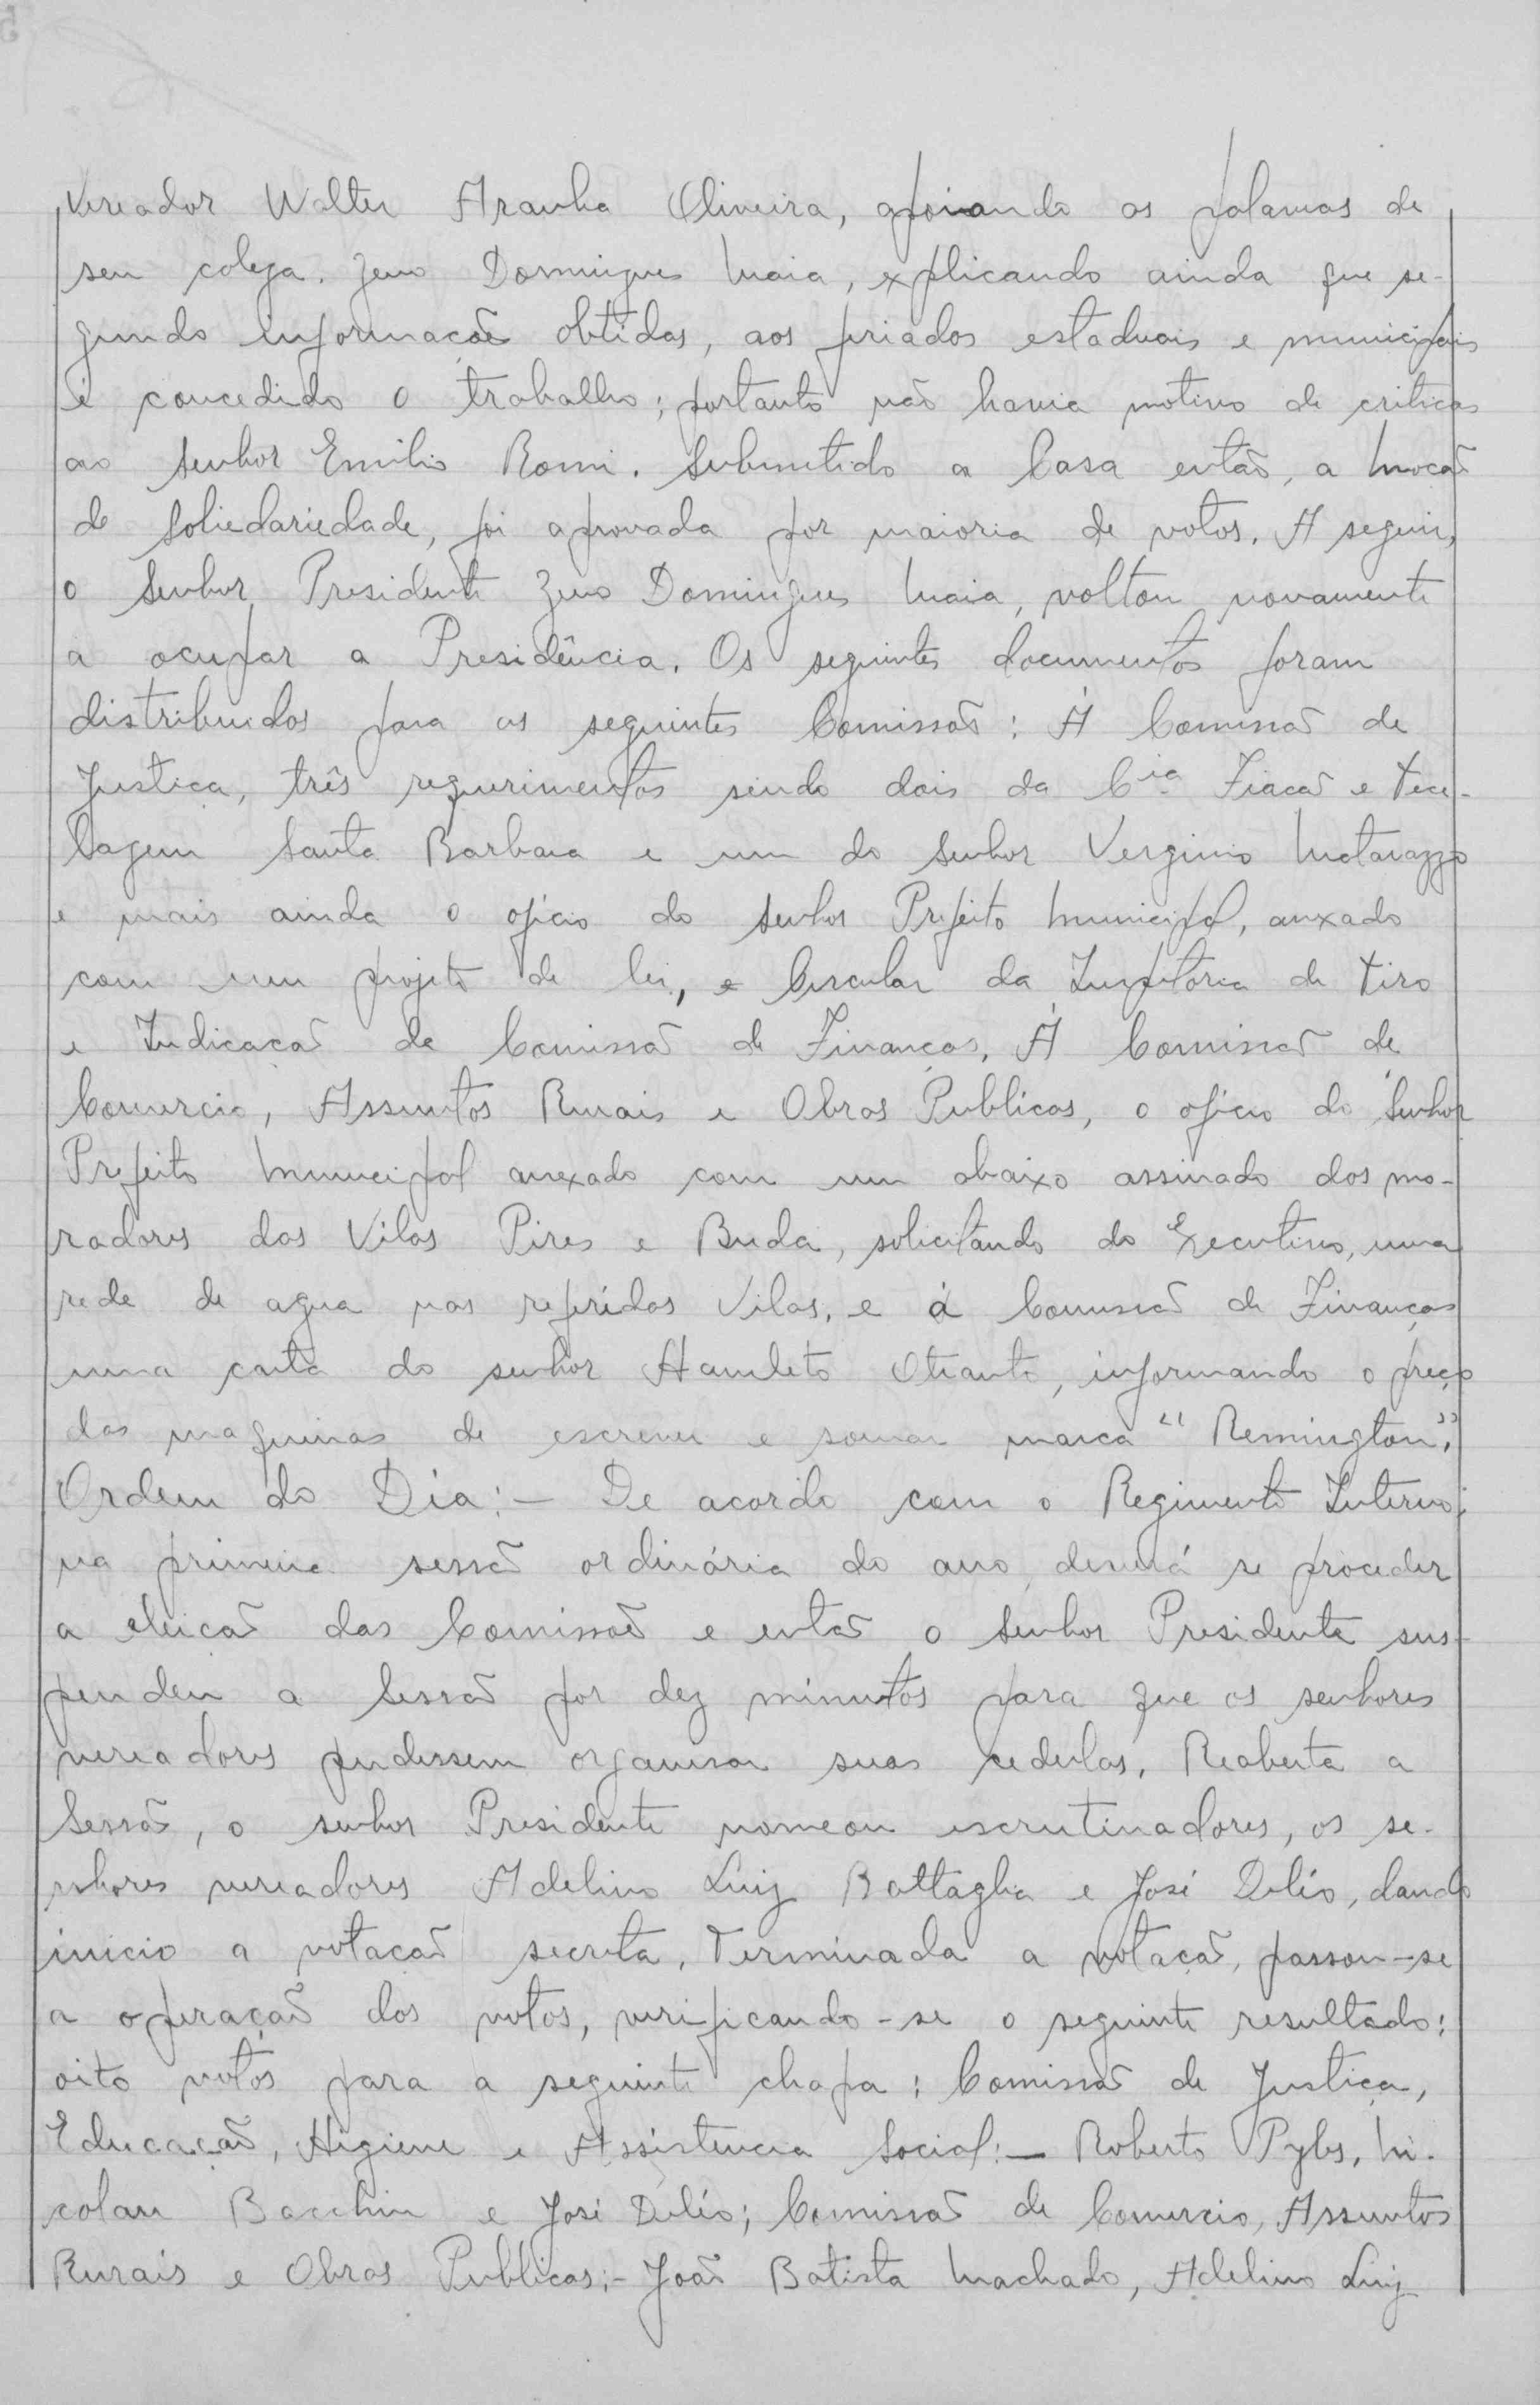 Vereador Walter Aranha Oliveira, apoiando as palavras de
seu colega. Zeno Domingues Maia, explicando ainda que se-
gundo informação obtidas, aos feriados estaduais e municipais
é concedido o trabalho; portanto não havia motivo de criticas
ao senhor Emilio Romi. Submetido a Casa então, a Moção
de Soliedariedade, foi aprovada por maioria de votos. A seguir,
o Senhor Presidente Zeno Domingues Maia, voltou novamente
a ocupar a Presidência. Os seguintes documentos foram
distribuidos para as seguintes Comissões: Á Comissão de
Justiça, três requerimentos sendo dois da Cia Fiação e Tece-
lagem Santa Barbara e um do senhor Verginio Matarazzo
e mais ainda o oficio do senhor Prefeito Municipal, anxado
com um projeto de lei, e Circular da Inspetoria de Tiro
e Indicação de Comissão de Finanças. Á Comissão de
Comercio, Assuntos Rurais e Obras Publicas, o oficio do Senhor
Prefeito Municipal anexado com um abaixo assinado dos mo-
radores das Vilas Pires e Buda, solicitando do Executivo, uma
rede de agua nas referidas Vilas, e á Comissão de Finanças
uma carta do senhor Hamleto Otranto, informando o preço
das maquinas de escrever e somar marca "Remington".
Ordem do Dia:- De acordo com o Regimento Interno;
na primeira sessão ordinária do ano, deverá se proceder
a eleição das Comissões e então o Senhor Presidente sus-
pendeu a Sessão por dez minutos para que os senhores
vereadores pudessem organisar suas cedulas. Reaberta a
Sessão, o senhor Presidente nomeou escrutinadores, os se-
nhores vereadores Adelino Luiz Battaglia e José Délio, dando
inicio a votação secreta. Terminada a votação, passou-se
a operação dos votos, verificando-se o seguinte resultado:
oito votos para a seguinte chapa: Comissão de Justiça,
Educação, Higiene e Assistencia Social:- Roberto Pyles, Ni-
colau Bacchin e José Délio; Comissão de Comercio, Assuntos
Rurais e Obras Publicas:- João Batista Machado, Adelino Luiz